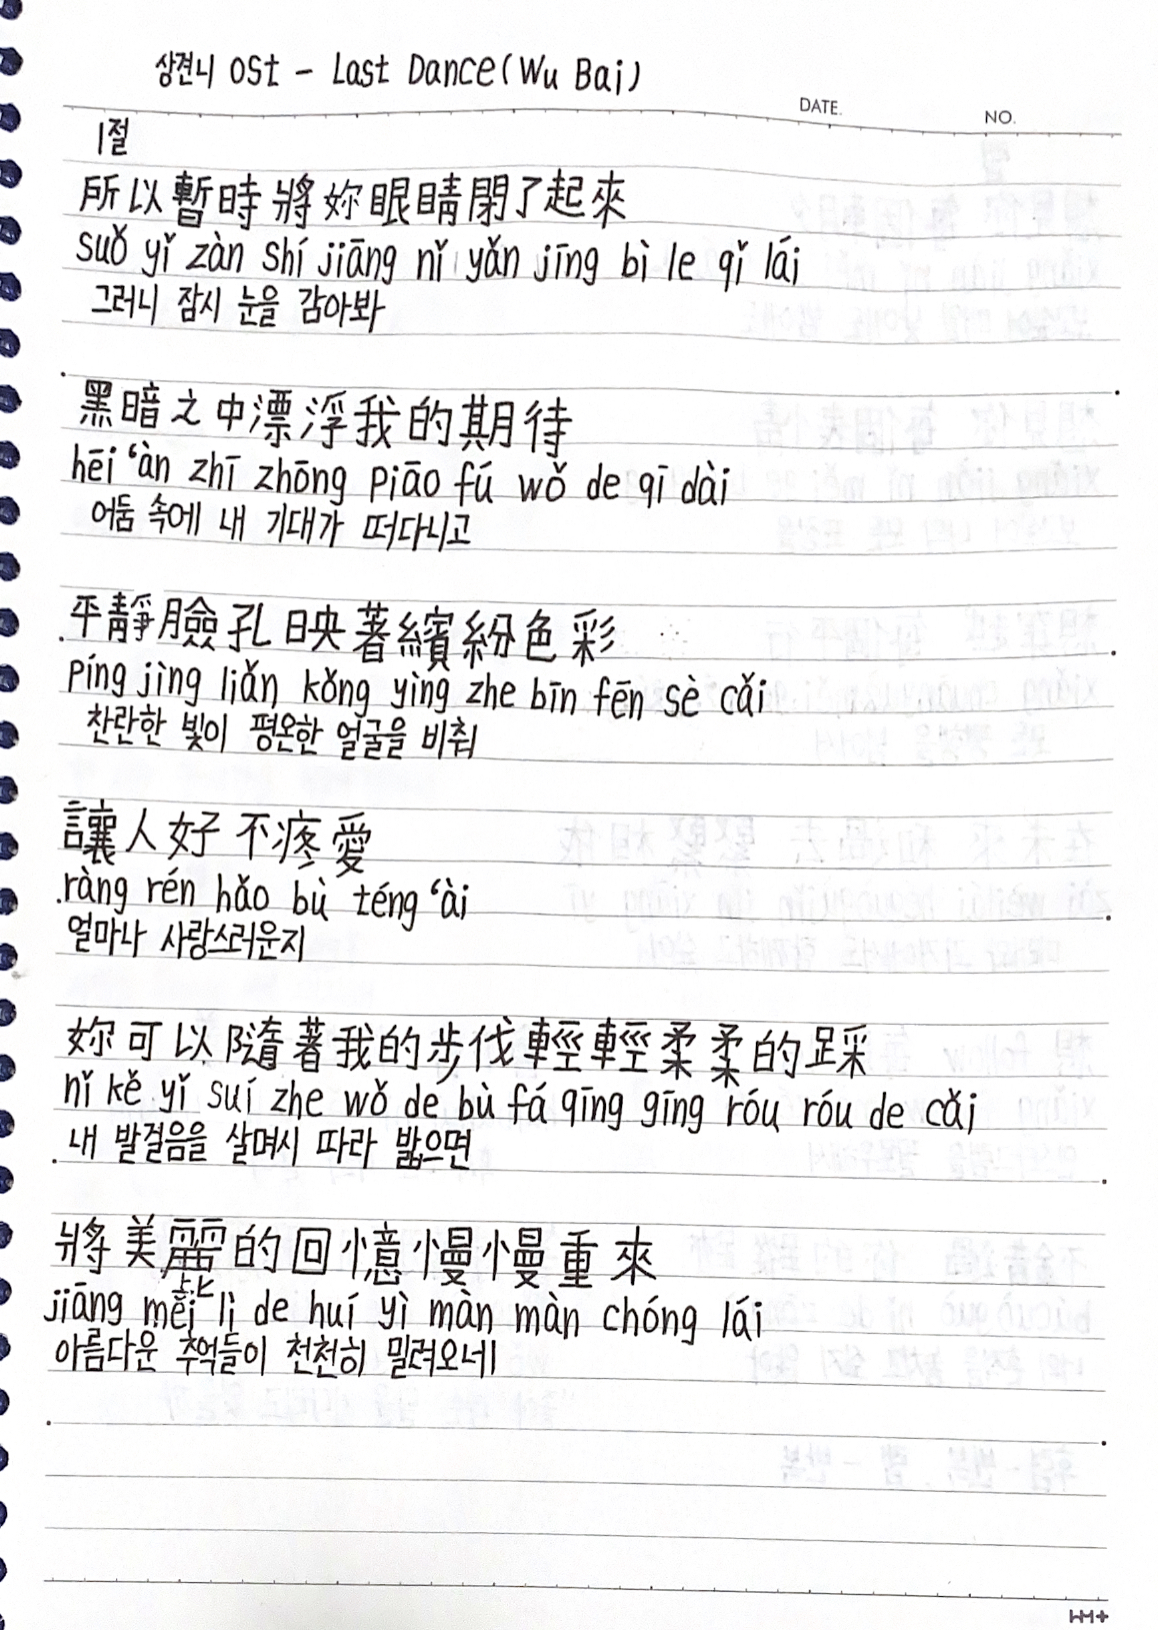 상견니 OSt - Last Dance (Wu Bai)
DATE.
NO.
1절
所以暫時將妳眼睛閉了起來
suǒ yǐ zàn shí jiāng nǐ yǎn jīng bì le qǐ lái
그러니 잠시 눈을 감아봐
黑暗之中漂浮我的期待
hēi 'àn zhī zhōng piāo fú wǒ de qī dài
어둠 속에 내 기대가 떠다니고
平靜臉孔映著繽紛色彩
píng jìng liǎn kǒng yìng zhe bīn fēn sè cǎi
찬란한 빛이 평온한 얼굴을 비춰
讓人好不疼愛
ràng rén hǎo bù téng 'ài
얼마나 사랑스러운지
妳可以隨著我的步伐輕輕柔柔的踩
nǐ kě yǐ suí zhe wǒ de bù fá qīng qīng róu róu de cǎi
내 발걸음을 살며시 따라 밟으면
將美麗的回憶慢慢重來
jiāng měi lì de huí yì màn màn chóng lái
아름다운 추억들이 천천히 밀려오네